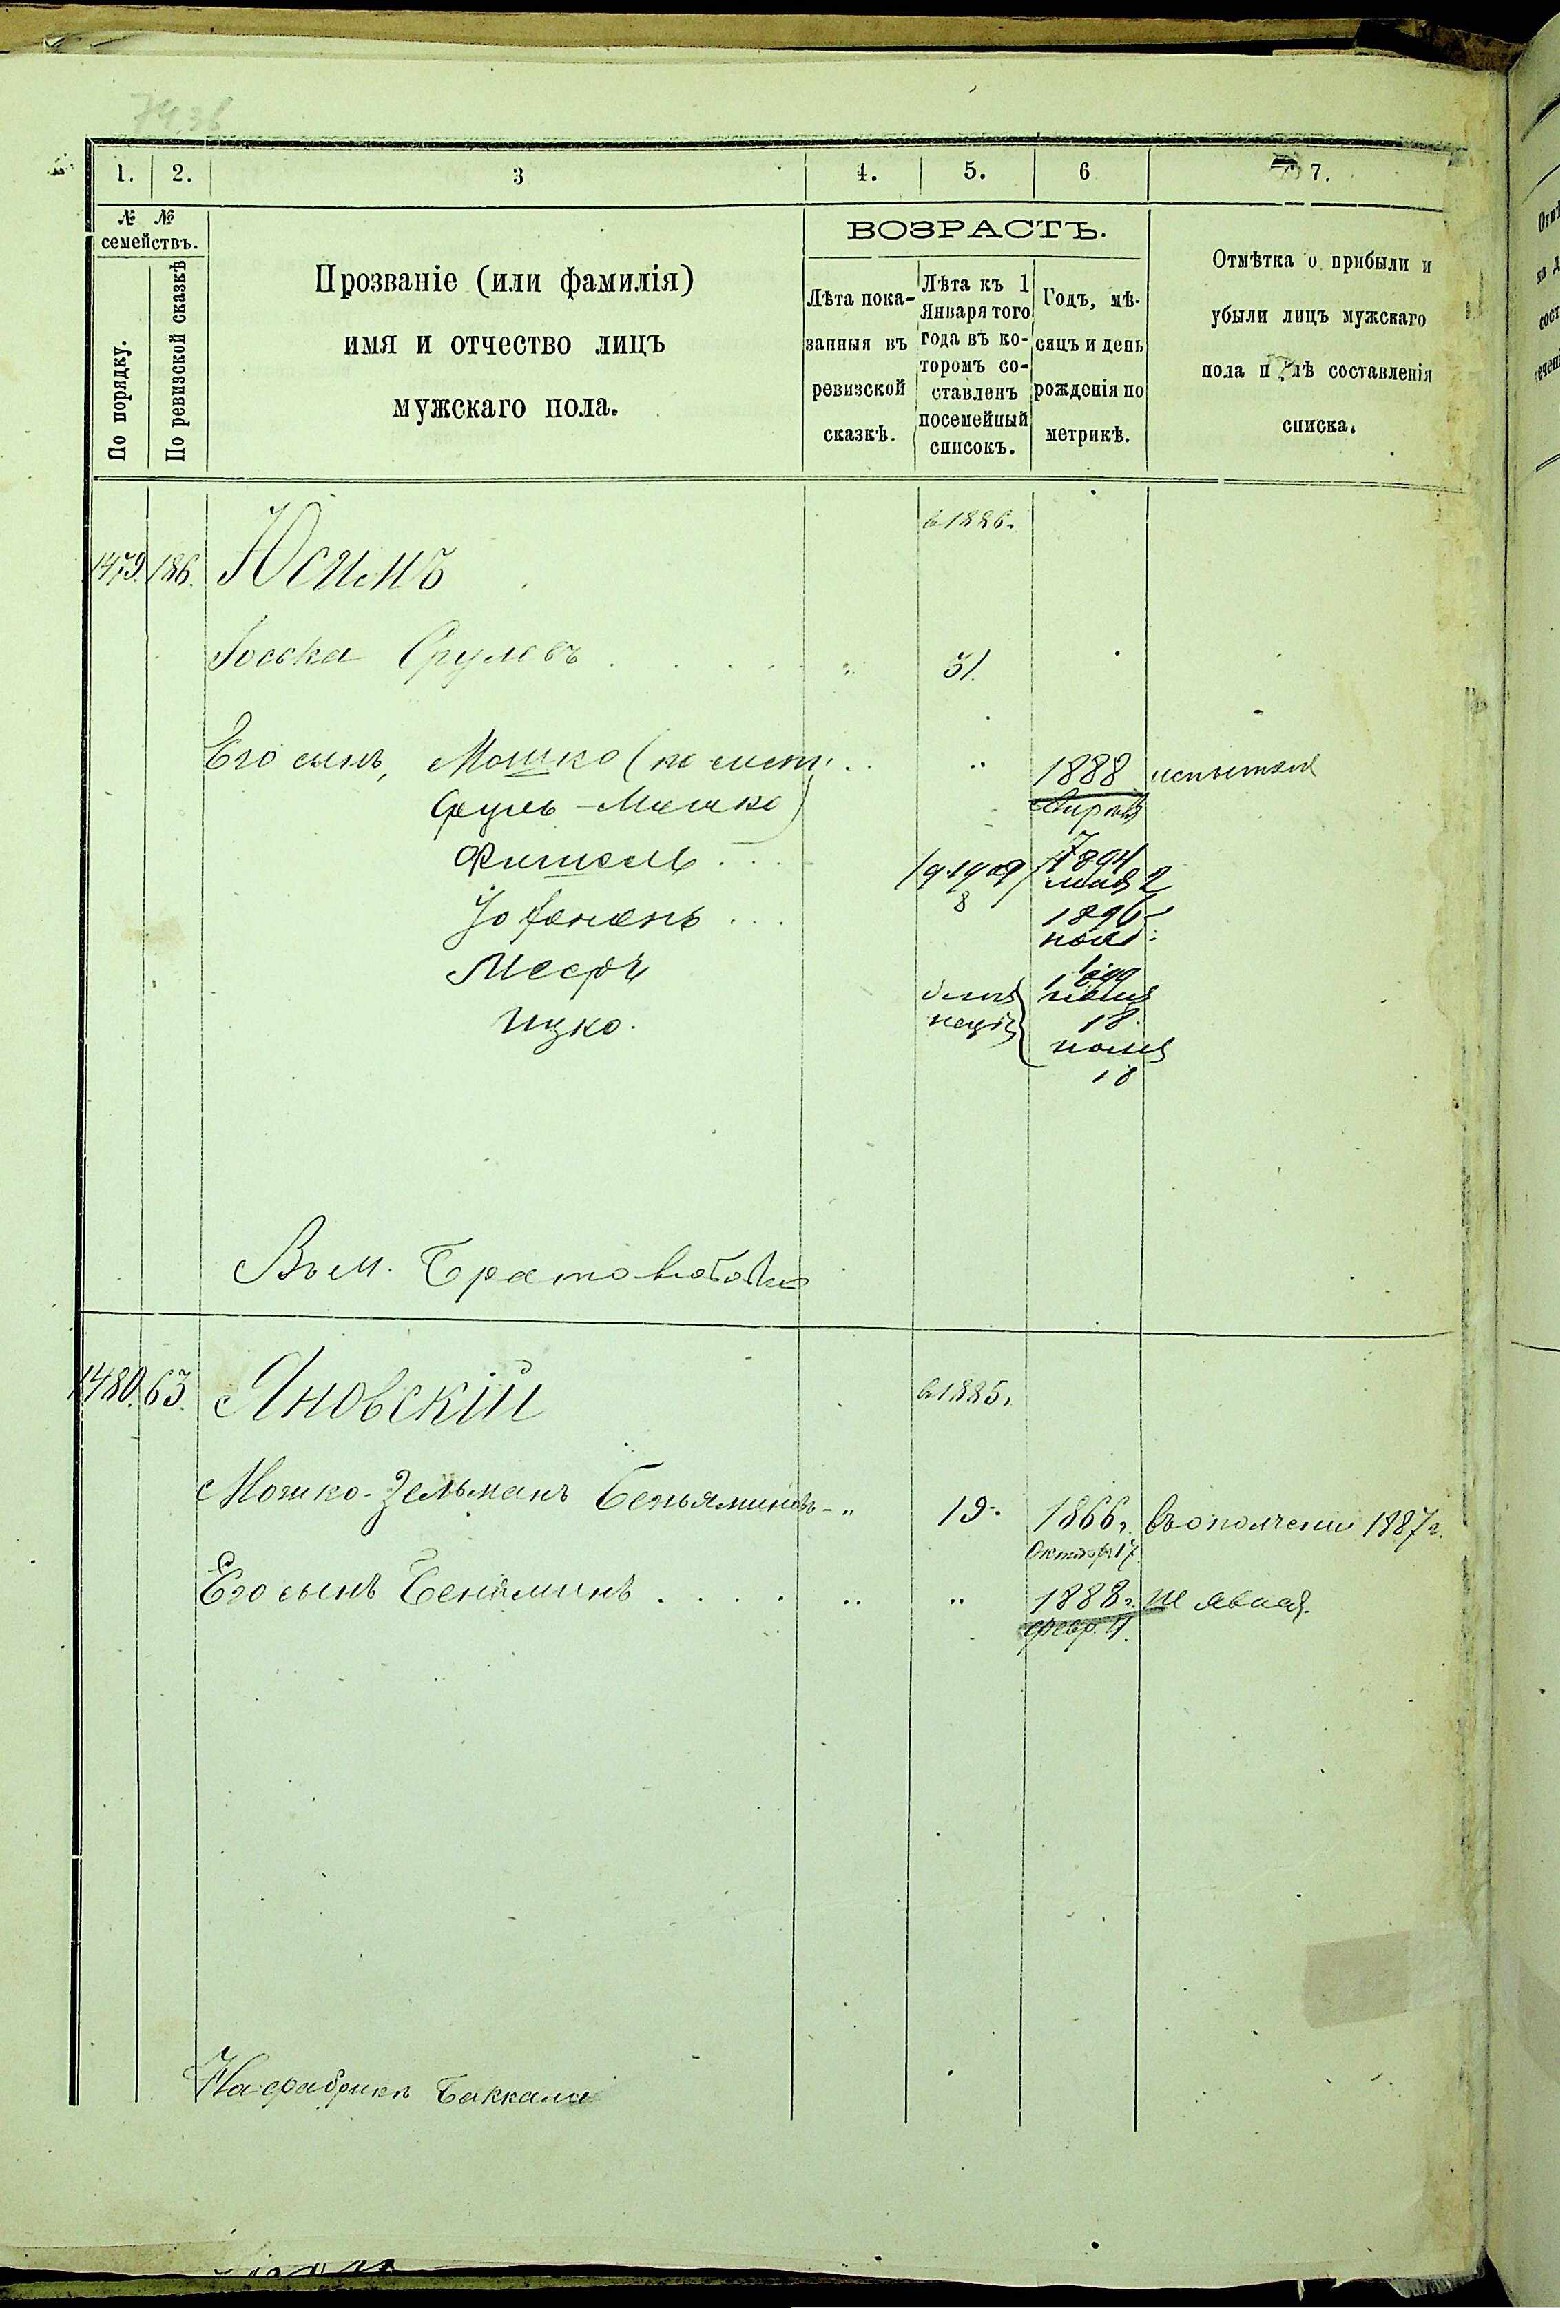 1. 2. 3 4. 5. 6 7.
№ № семействъ.
По порядку.
По ревизской сказкѣ
Прозваніе (или фамилія)
имя и отчество лицъ
мужскаго пола.
ВОЗРАСТЪ.
Лѣта пока-
занныя въ
ревизской
сказкѣ.
Лѣта къ 1
Января того
года въ ко-
торомъ со-
ставленъ
посемейный
списокъ.
Годъ, мѣ-
сяцъ и день
рожденія по
метрикѣ.
Отмѣтка о прибыли и
убыли лицъ мужскаго
пола составленія
списка.
в 1886.
1479. 186. Юсимъ
Иоська Срулевъ 31.
Его сынъ, Мошко (по метр. 1888
Сруль-Мошко)
Фишель 19 1909 1894
8 мая 2
Иофанань
Месеръ
Ицко. 18.
18
Въ м. Братолюбовка
1480. 63. Яновскій в 1885.
Мошко-Зельманъ Беньяминовъ 19. 1866г. Въ ополчении 1887г.
Октября 17
Его сынъ Беніяминъ 1888г. не явился.
февр. 4.
На фабрикѣ Баккала